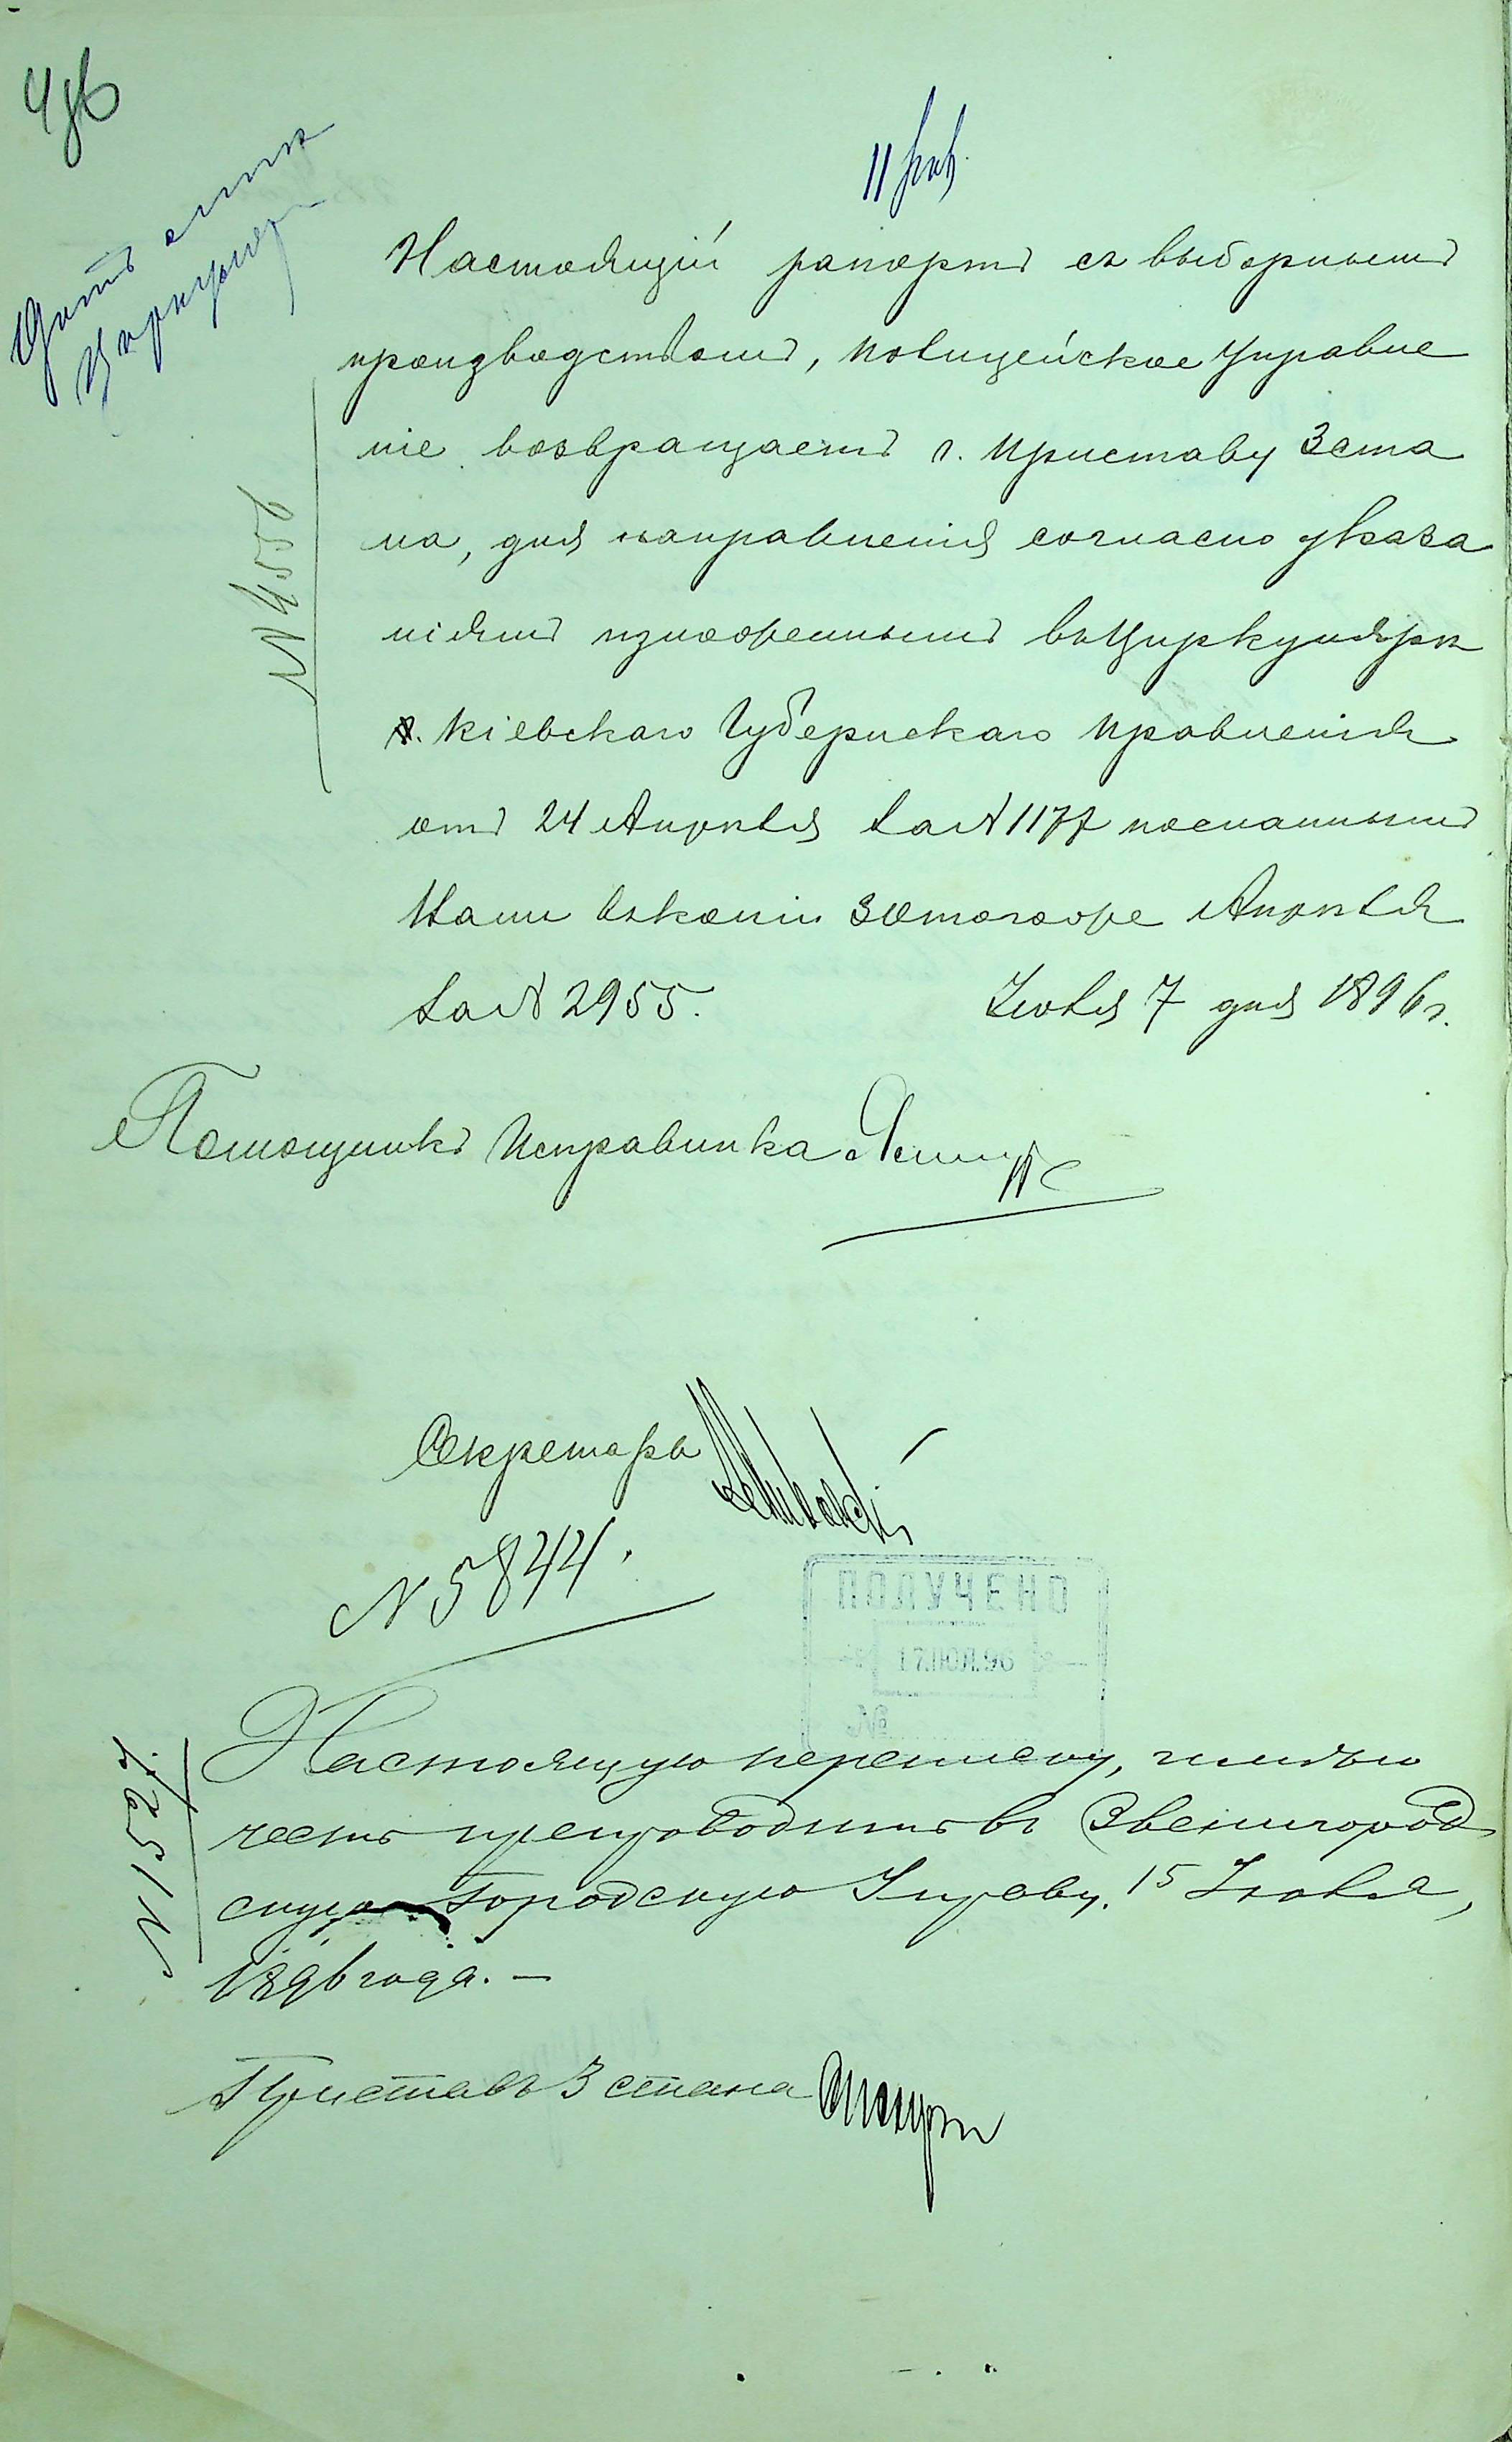 Настоящій рапортъ съ выборнымъ
производствомъ, Полицейское Управле
ніе возвращаетъ г. Приставу 3 ста
на, для направленія согласно указа
ніямъ изложеннымъ въ Циркулярѣ
Кіевскаго Губернскаго Правленія
отъ 24 Апрѣля за № 1177 посланнымъ
Вамъ въ копіи 30 того же Апрѣля
за № 2955. Іюля 7 дня 1896 г.
№ 4556
Помощникъ Исправника
Секретарь
№ 5844.
ПОЛУЧЕНО
17.ІЮЛ.96
№
Настоящую переписку, имѣю
честь препроводить въ Звенигород
скую Городскую Управу. 15 Іюля,
1896 года. —
№ 1527.
Приставъ 3 стана